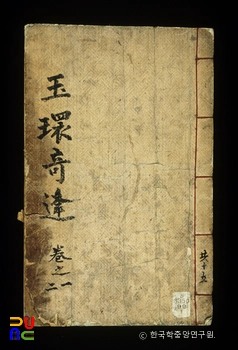 玉環奇逢
卷之一
二
共十五
© 한국학중앙연구원